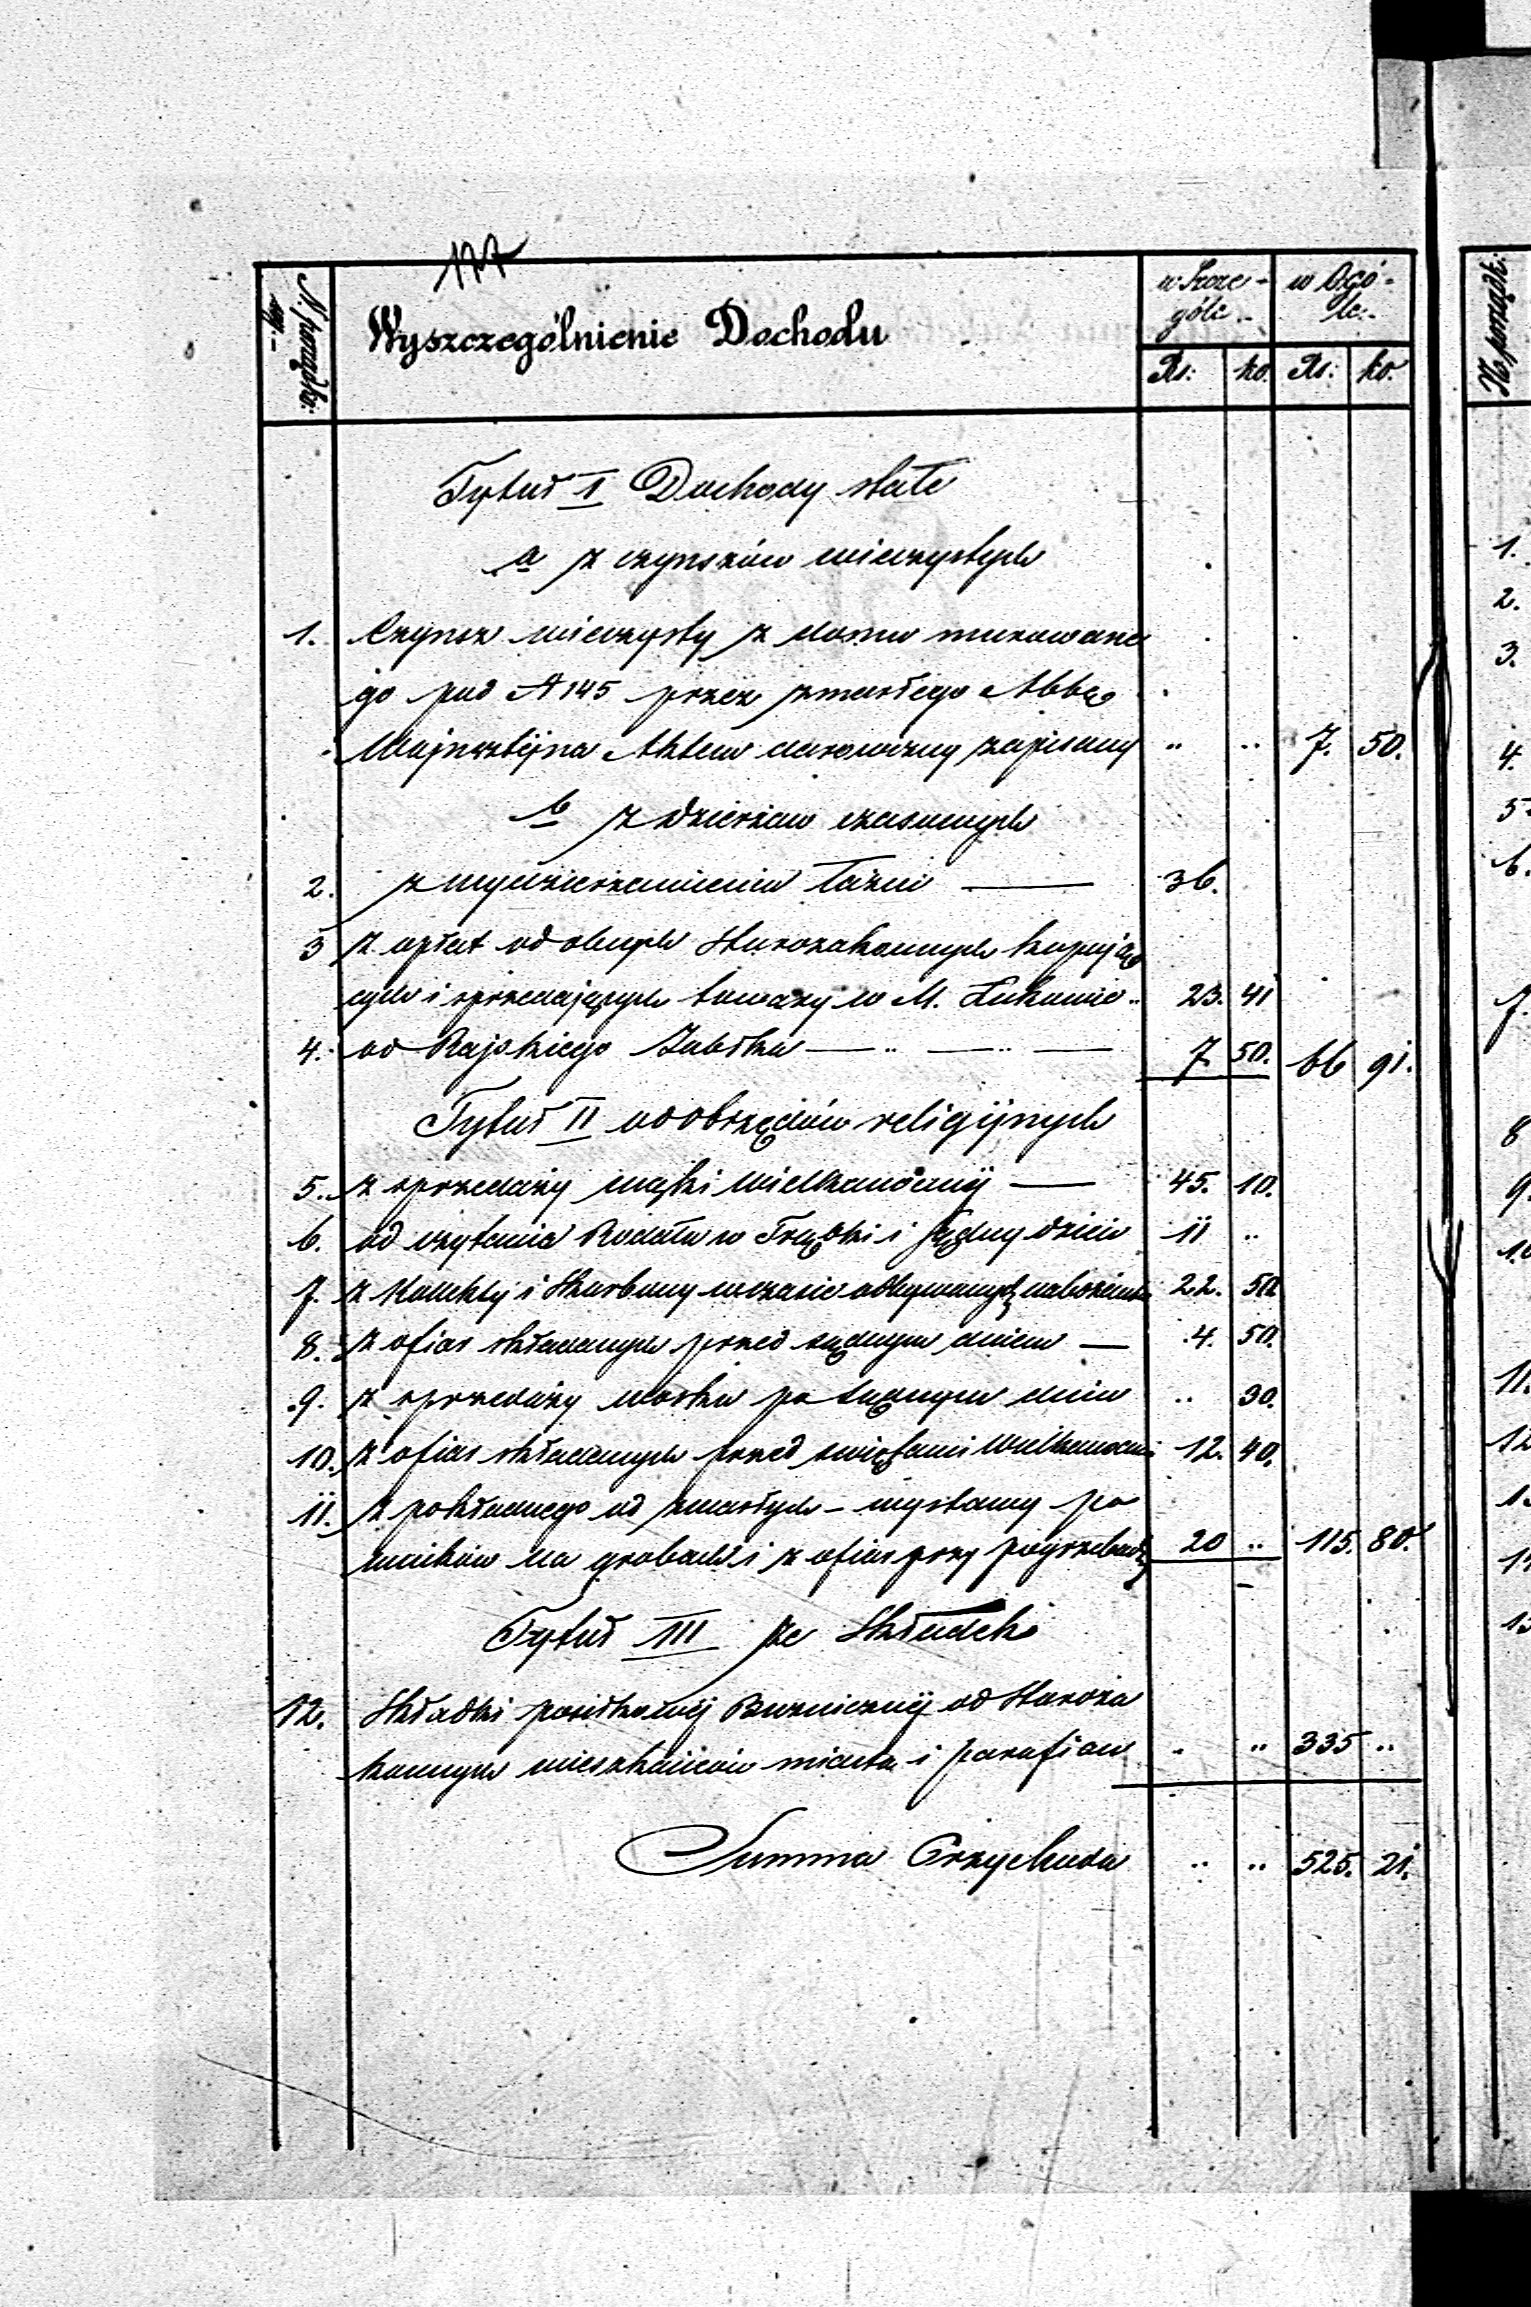 177
N. porządko:
wy.-
Wyszczególnienie Dochodu
w Szcze-
góle -
w Ogó-
le:-
Rs: ko. Rs: ko.
Tytuł I Dochody stałe
a z czynszów wieczystych
1. Czynsz wieczysty z domu murowane
go pod N 145 przez zmarłego Abbę
Wajnsztejna Aktem darowizny zapisany " " 7. 50.
b z dzierżaw czasowych
2. z wydzierżawienia łaźni — 36.
3 z opłat od obcych Starozakonnych kupują
cych i sprzedających towary w M. Łukowie " 23. 41
4. od Rajskiego Jabłka — " — " — 7 50. 66 91.
Tytuł II od obrzędów religijnych
5. z sprzedaży mąki Wielkanocnej — 45. 10.
6. od czytania Rodału w Trąbki i Sądny dzień 11 "
7. z Kollekty i Skarbony w czasie odbywanych nabożeństw 22. 50
8. z ofiar składanych przed sądnym dniem — 4. 50.
9. z sprzedaży wosku po Sądnym dniu " 30.
10. z ofiar składanych przed świętami Wielkanocnemi 12. 40.
11. z pokładnego od zmarłych - wystawy po
mników na grobach i z ofiar przy pogrzebach 20 " 115. 80.
Tytuł III ze Składek
12. Składki posiłkowej Bużnicznej od Staroza
konnych mieszkańców miasta i parafian " " 335 "
Summa Przychodu " " 525. 21.
N. porządk:
1.
2.
3.
4.
5
6.
7.
8
9.
11.
12